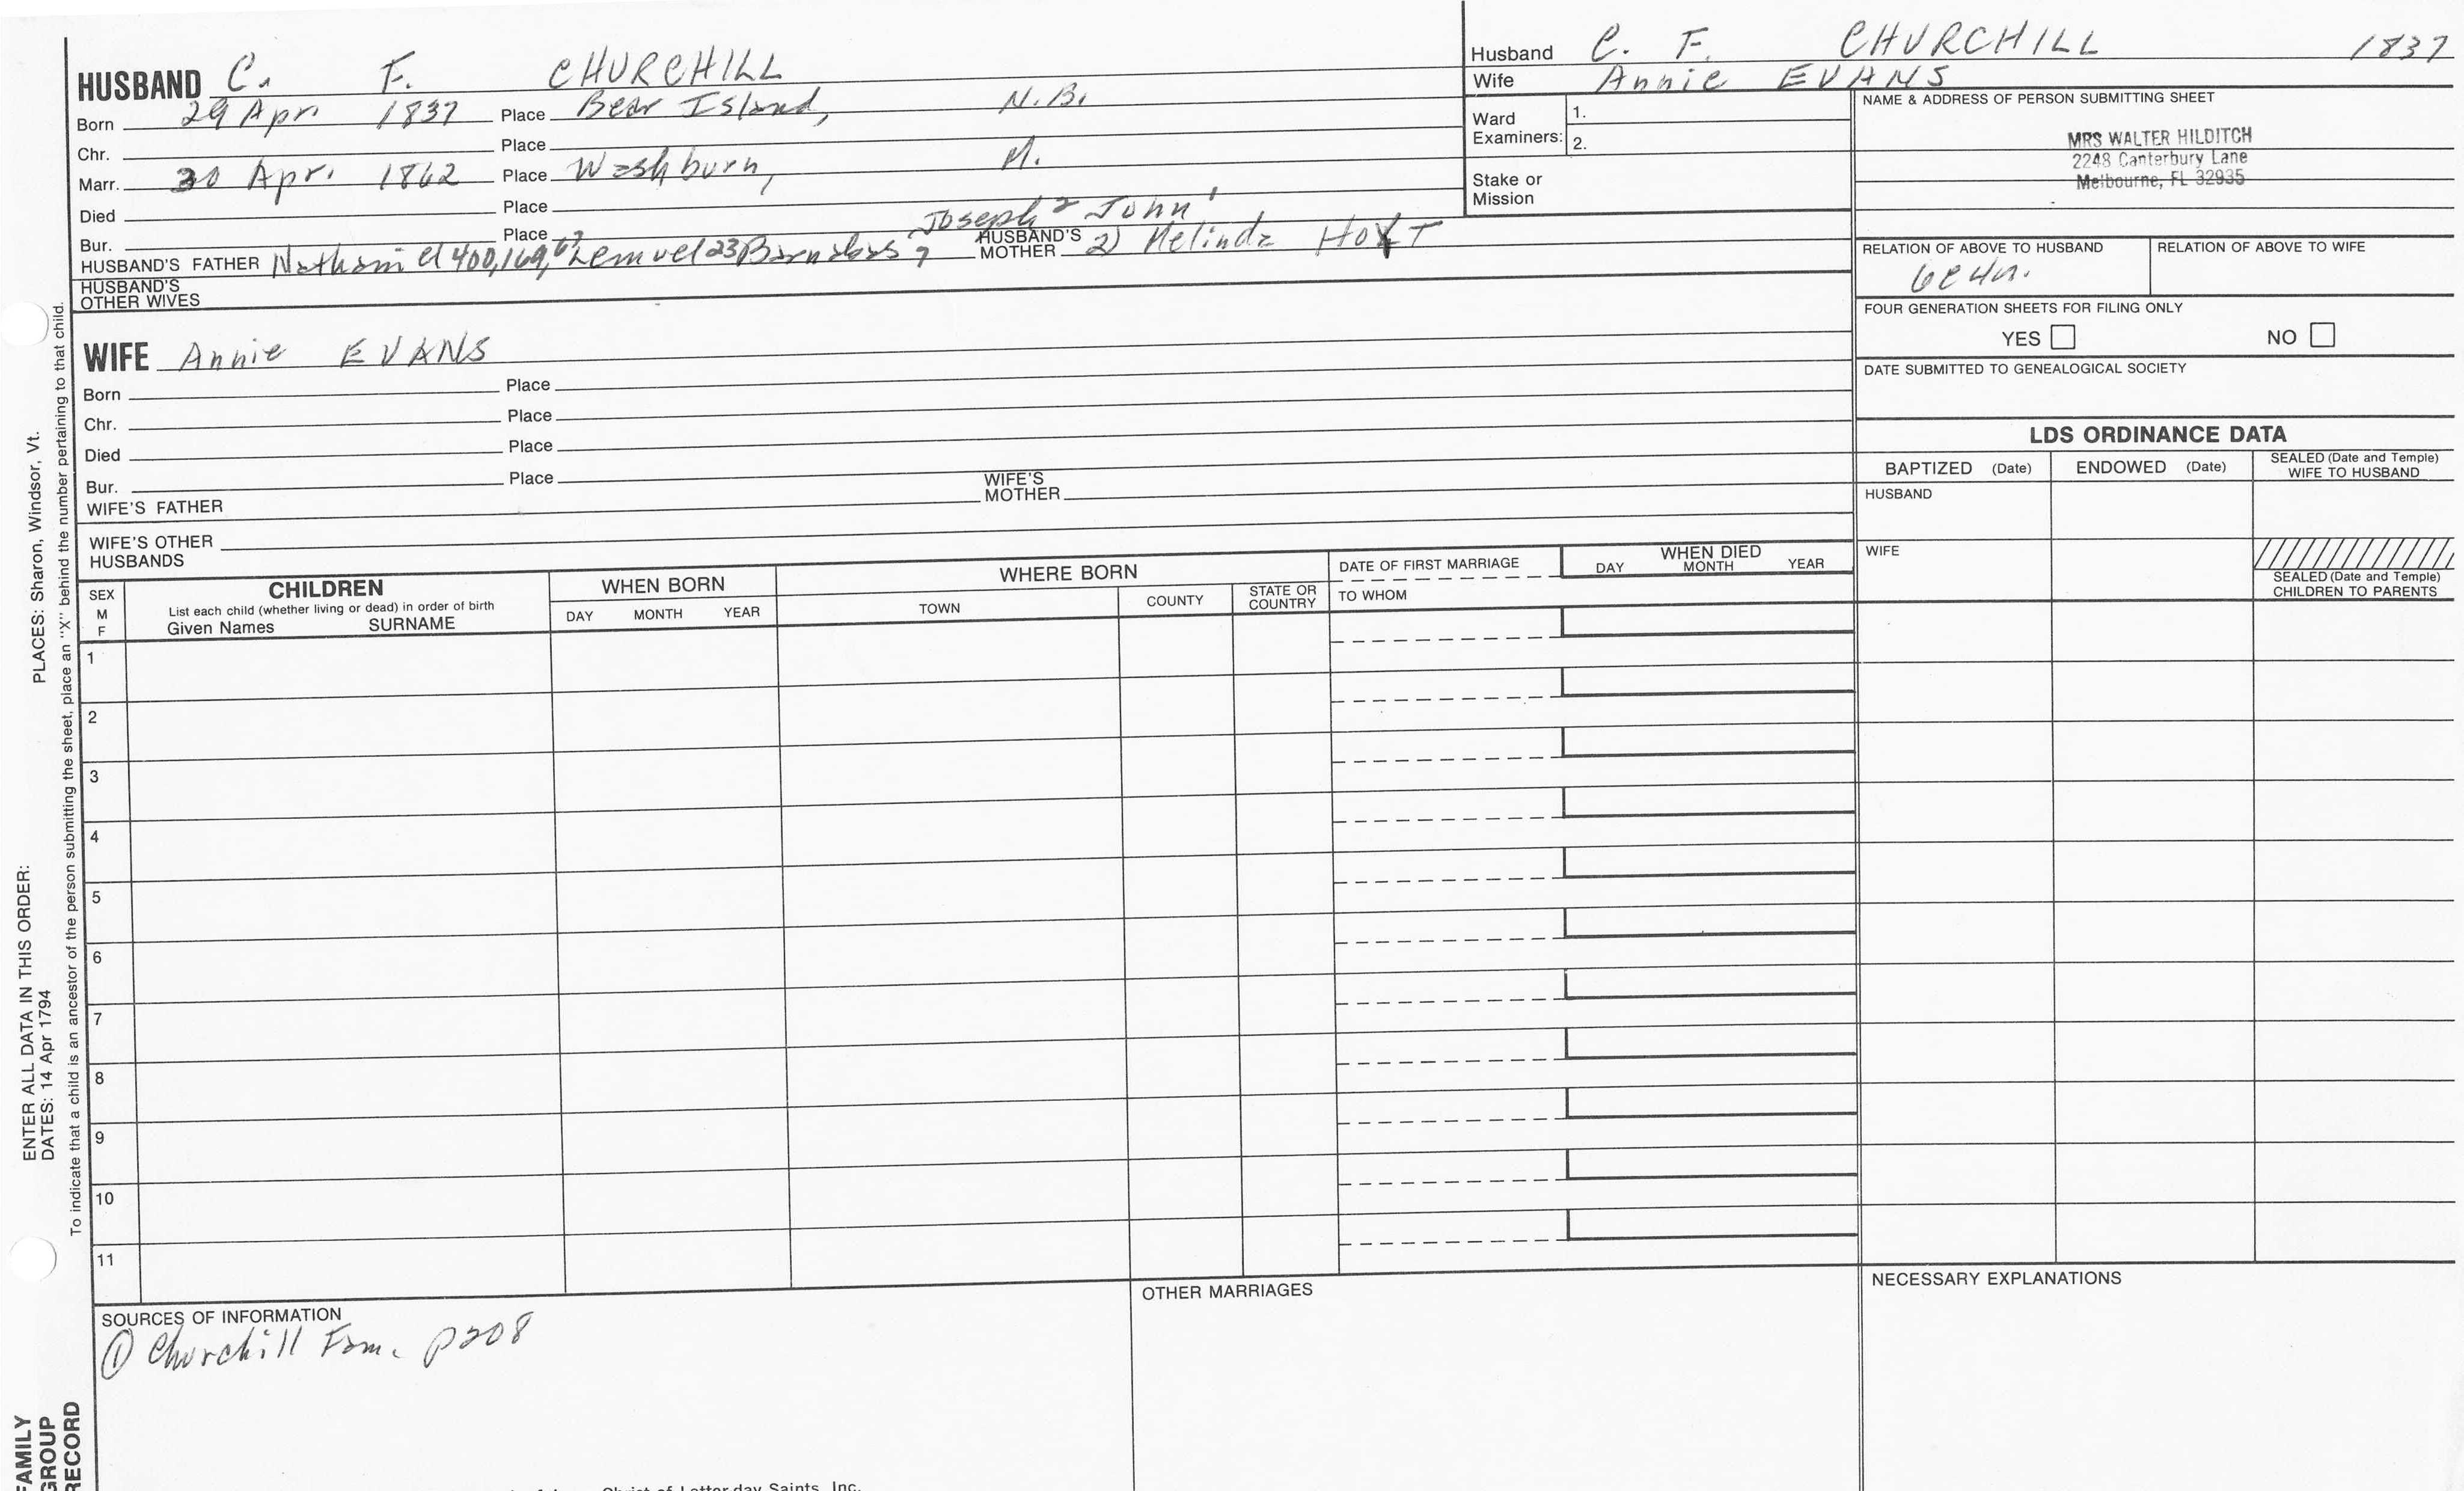 HUSBAND C. F. CHURCHILL
Born 29 Apr. 1837 Place Bear Island, N.B.
Chr. Place
Marr. 30 Apr. 1862 Place Washburn, M.
Died Place
Bur. Place Joseph 2 John 1
HUSBAND'S FATHER Nathaniel 400, 169, 67 Lemuel 23 Barnabas 7 HUSBAND'S MOTHER 2) Melinda HOYT
HUSBAND'S OTHER WIVES
WIFE Annie EVANS
Born Place
Chr. Place
Died Place
Bur. Place
WIFE'S FATHER WIFE'S MOTHER
WIFE'S OTHER HUSBANDS
Husband C. F. CHURCHILL 1837
Wife Annie EVANS
Ward Examiners: 1.
2.
Stake or Mission
NAME & ADDRESS OF PERSON SUBMITTING SHEET
MRS WALTER HILDITCH
2248 Canterbury Lane
Melbourne, FL 32935
RELATION OF ABOVE TO HUSBAND RELATION OF ABOVE TO WIFE
FOUR GENERATION SHEETS FOR FILING ONLY
YES NO
DATE SUBMITTED TO GENEALOGICAL SOCIETY
LDS ORDINANCE DATA
BAPTIZED (Date) ENDOWED (Date) SEALED (Date and Temple) WIFE TO HUSBAND
HUSBAND
WIFE
SEALED (Date and Temple) CHILDREN TO PARENTS
SEX M F
CHILDREN
List each child (whether living or dead) in order of birth
Given Names SURNAME
WHEN BORN
DAY MONTH YEAR
WHERE BORN
TOWN COUNTY STATE OR COUNTRY
DATE OF FIRST MARRIAGE
TO WHOM
WHEN DIED
DAY MONTH YEAR
1
2
3
4
5
6
7
8
9
10
11
SOURCES OF INFORMATION
① Churchill Fam. p208
OTHER MARRIAGES
NECESSARY EXPLANATIONS
PLACES: Sharon, Windsor, Vt.
ENTER ALL DATA IN THIS ORDER:
DATES: 14 Apr 1794
To indicate that a child is an ancestor of the person submitting the sheet, place an "X" behind the number pertaining to that child.
FAMILY
GROUP
RECORD
Christ of Latter-day Saints, Inc.